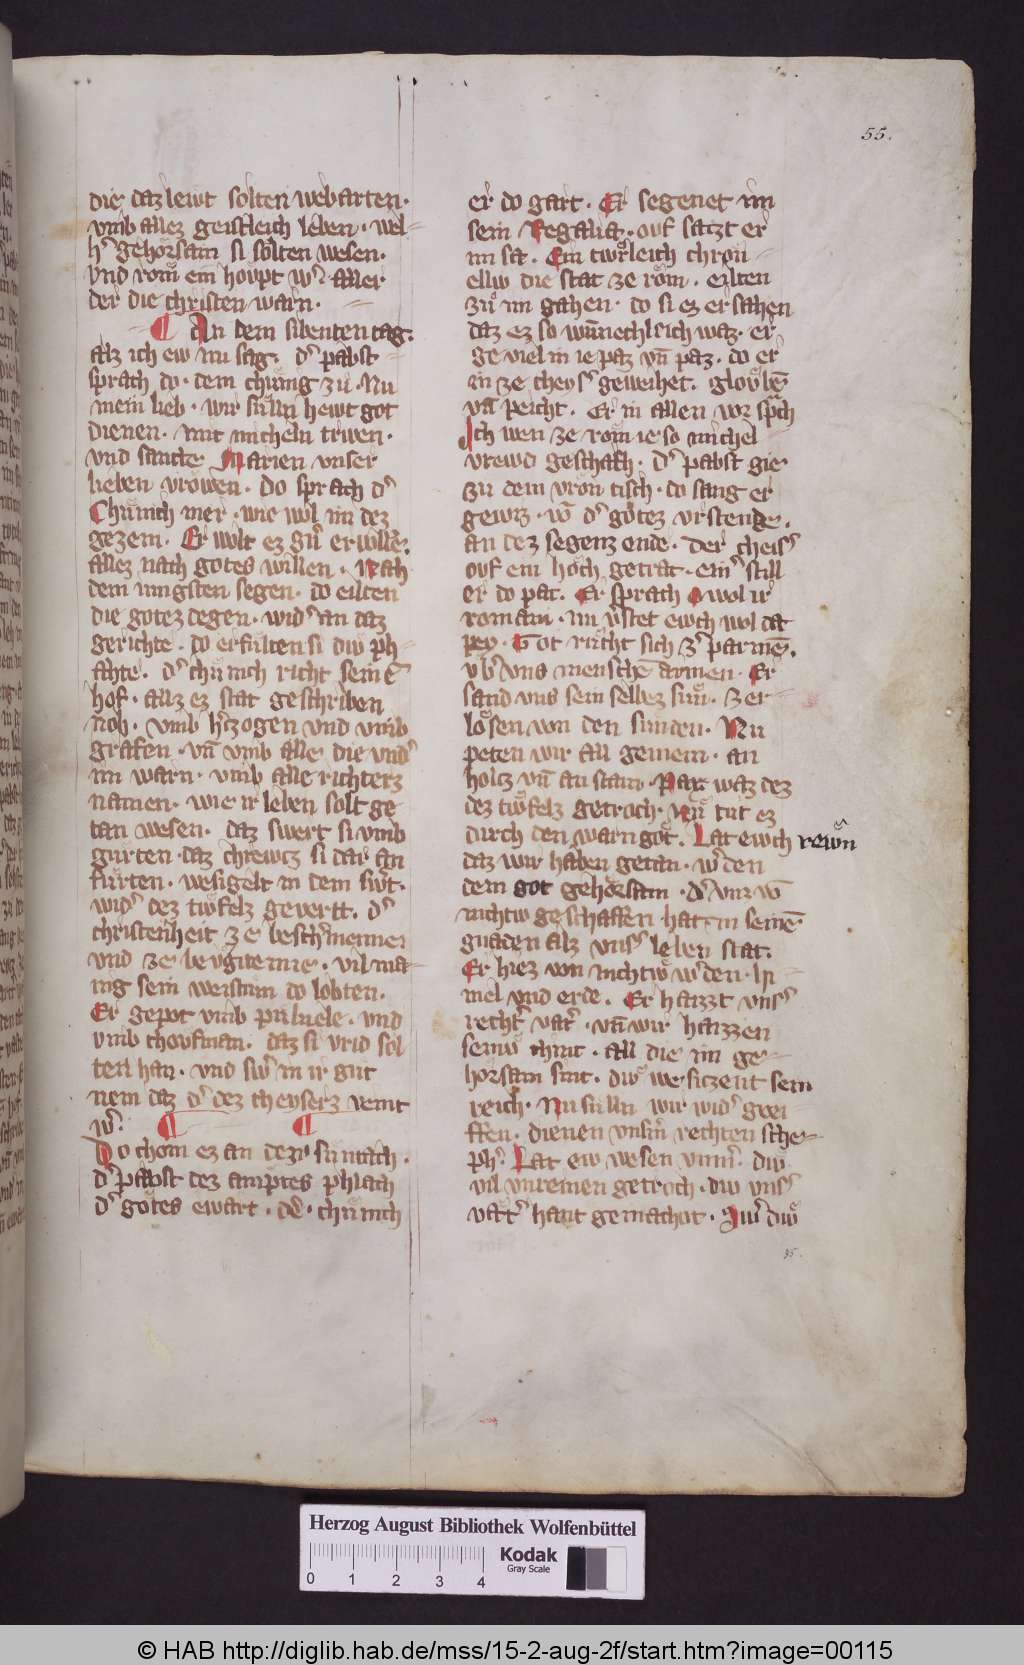 55.
die daz lewt solten webarten·
vmb allez geistleich leben· wel-
hˢ gehoͤrsam si solten wesen·
vnd rom ein houpt wˢ aller
der die christen warn·
An dem sibenten tag·
alz ich ew nu sag· dˢ pabst
sprach do· dem chuͤnig zu· Nu
mein lieb· wir suͤlln hewt got
dienen· mit micheln triwen·
vnd sancte Marien vnser
lieben vrowen· do sprach dˢ
Chuͤnich mer· wie wol im dez
gezem· Er wolt ez
allez nach gotes willen· Nach
dem iungsten segen· do eilten
die gotez degen· widˢ an daz
gerichte· do erfulten si diw ph-
ahte· dˢ chuͤnich richt seinē
hof· allz ez stat geschriben
noh· vmb hˢtzogen vnd vmb
grafen· vn̄ vmb alle die vndˢ
im warn· vmb alle richterz
namen· wie ir leben solt ge
tan wesen· daz swert si vmb
gurten· daz chrewtz si dar an
fuͤrten· wesigelt in dem
widˢ dez tiwfelz gevertt· dˢ
christenheit ze beschˢmenne
vnd ze· vil ma-
nig sein weistum do lobten·
Er gepot vmb· vnd
vmb choufman· daz si vrid sol
ten han· vnd swˢ in ir gut
nem daz dˢ dez cheyserz veint
wˢ·
Do chom ez an dem suntach·
dˢ pabst dez amptes phlach
dˢ gotes ewart· dˢ chuͤnich
er do gart· Er segenet im
sein Regalia· ouf satzt er
im sa· Ein chron
elliv die stat ze rom· eilten
zu im gahen· do si ez ersahen
daz ez so wunechleich waz· er
geviel in ie paz vn̄ paz· do er
in ze cheysˢ geweihet· glouben
vn̄ peicht· Er in allen vor spͣch
Ich wen ze rom ie so michel
vrewd geschach· dˢ pabst gie
zu dem vron tisch· do sang er
gewis· vō dˢ gotez vrstende·
an dez segenz ende· der cheisˢ
ouf ein hoch getrat· einˢ still
er do pat· Er sprach wol ir
romani· nu vˢstet ewch wol da
pey· Got rucht sich zˢparmē·
vbˢ vns menschē armen· Er
sand vns sein selbez sun· zer-
loͤsen von den sunden· Nu
peten wir all gemein· an
holtz vn̄ an stain· Par waz dez
dez tiwfelz getroch· Nu tut ez
durch den warn got· Lat ewch rewn
daz wir haben getan· wˢden
dem got gehoͤrsam· dˢ vnz vō
nichtiv geschaffen hat· in seinē
gnaden alz vnsˢ leben stat·
Er hiez von nichtiv wˢden· hi-
mel vnd erde· Er haizzt vnsˢ
rechtˢ vatˢ· vn̄ wir haizzen
seiniv chint· all die im ge-
horsam sint· diw wesitzent sein
reich· Nu sulln wir widˢ grei-
ffen· dienen vnsm̄ rechten sche-
phˢ· Lat ew wesen vnmˢ· diw
vil vnreinen getroch· diw vnsˢ
vatˢ hant gemachot· Swˢ diw